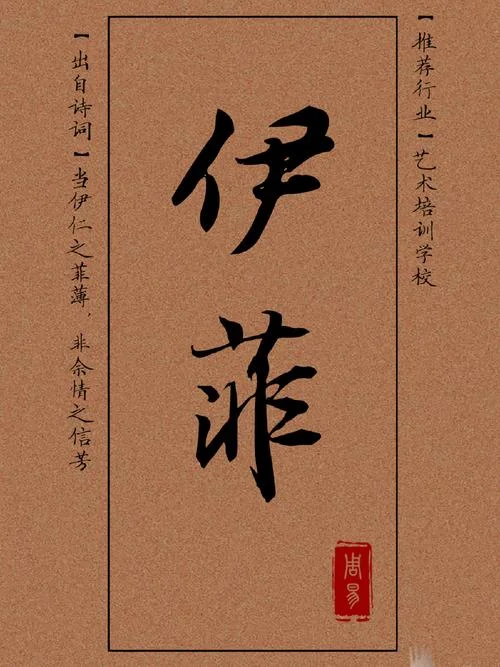 【推荐行业】艺术培训学校
伊菲
周易
【出自诗词】当伊仁之菲薄，非余情之信芳